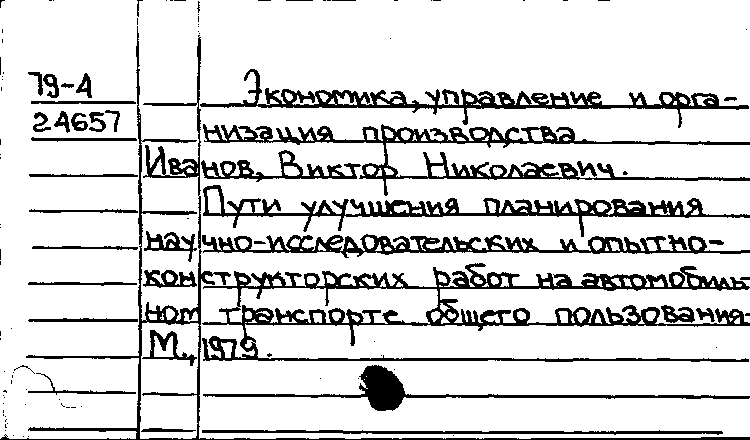 79-4
24657
Экономика, управление и орга-
низация производства.
Иванов, Виктор Николаевич.
Пути улучшения планирования
научно-исследовательских и опытно-
конструкторских работ на автомобиль-
ном транспорте общего пользования.
М., 1979.